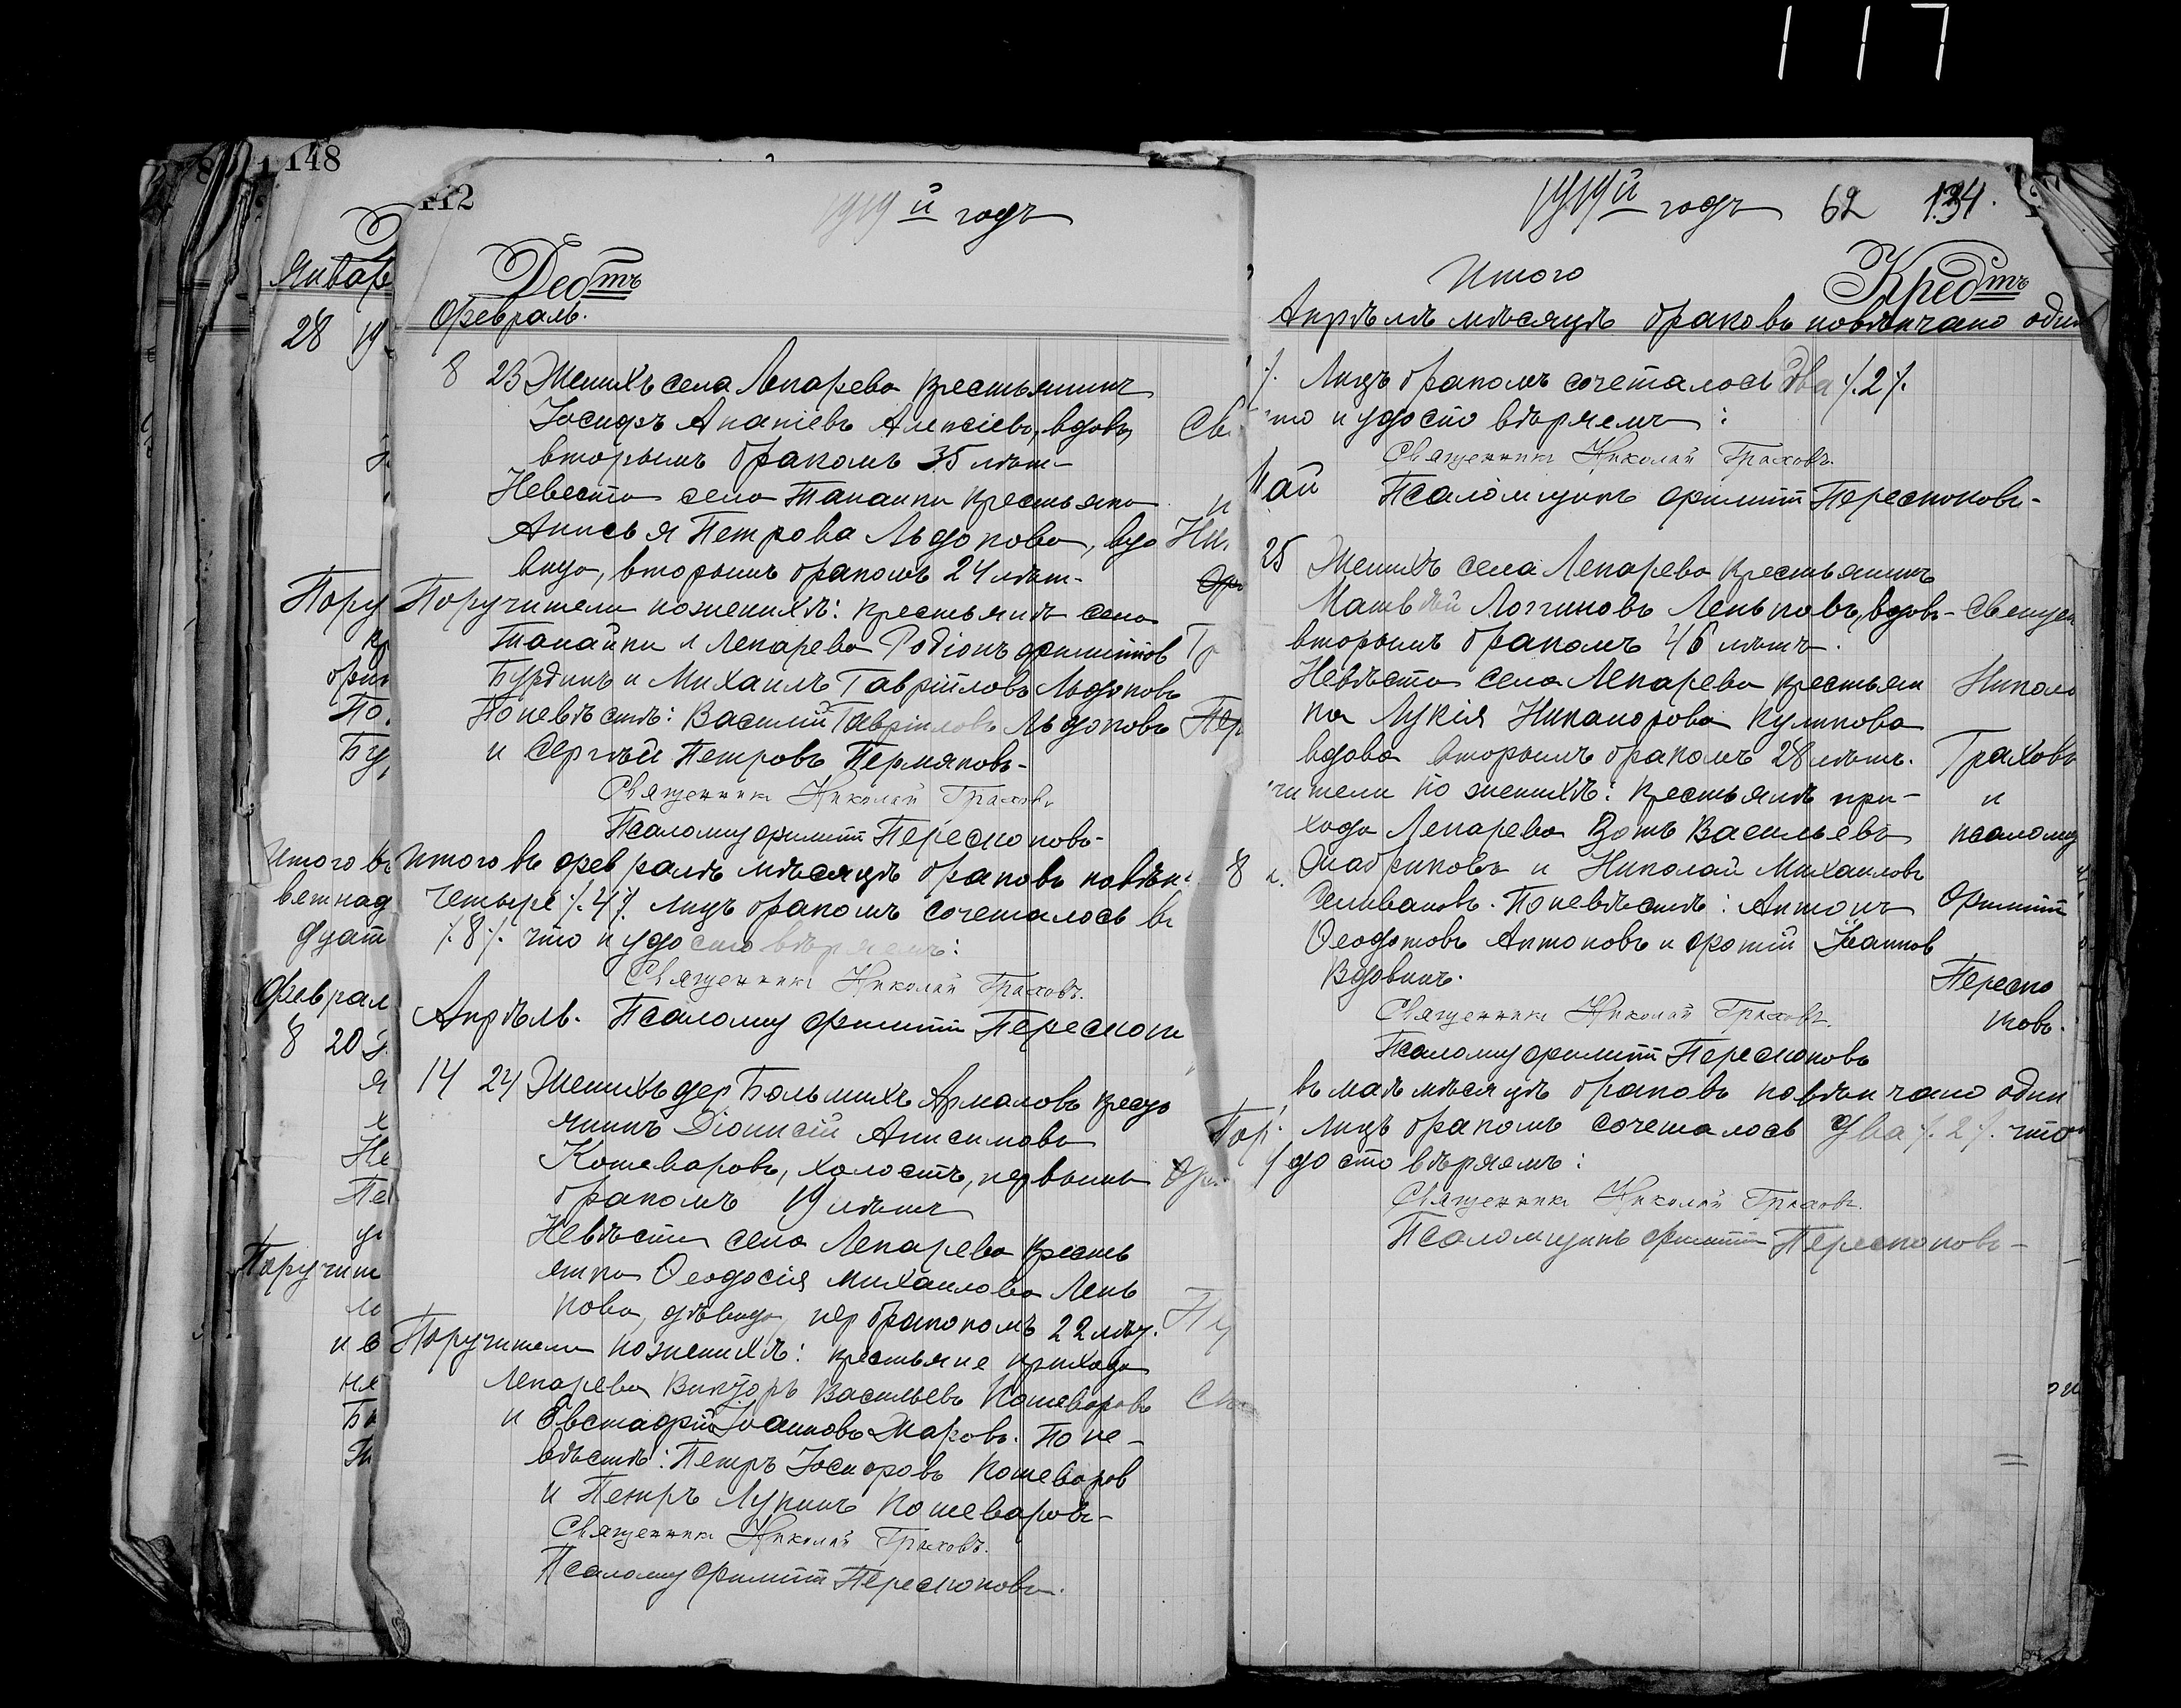 117
148
Январ
28 19
Пору
По
Бу
Итого въ
Феврал
8 20
Не
Поручит
112
1919й годъ
Дебтъ
Февраль.
8 23 Женихъ села Лекарево крестьянинъ
Іосифъ Ананіевъ Алексіевъ, вдовъ
вторымъ бракомъ 35 лѣтъ
Невеста села Танайки крестьянка
Анисья Петрова Льдокова, вдо
вица, вторымъ бракомъ 24 лѣтъ
Поручители по женихѣ: крестьянѣ села
Танайки и Лекарева Родіонъ Филиппов
Бурдинъ и Михаилъ Гавріиловъ Льдоковъ
По невѣстѣ: Василій Гавріиловъ Льдоковъ
и Сергѣй Петровъ Пермяковъ
Священникъ Николай Граховъ
Псаломщ Филиппъ Переспоновъ
Итого въ февралѣ мѣсяцѣ браковъ повѣн
четыре /.4/. лицъ бракомъ сочеталось
/.8/. что и удостовѣряемъ:
Священникъ Николай Граховъ.
Апрѣль. Псаломщ Филиппъ Переспон
14 24 Женихъ дер Большихъ Армаловъ кресто
янинъ Діонисій Анисимовъ
Кошеваровъ, холостъ, первымъ
бракомъ 19 лѣтъ
Невѣста села Лекарево кресть
янка Ѳеодосія Михаилова Лень
кова, дѣвица, пер бракокомъ 22 лѣт.
Поручители по женихѣ: крестьяне прихода
Лекарева Викторъ Васильевъ Кошеваровъ
и Евстафій Іоанновъ Жаровъ. По не-
вѣстѣ: Петръ Іосифовъ Кошеваров
и Петръ Лукинъ Кошеваровъ
Священникъ Николай Граховъ.
Псаломщ Филиппъ Переспоновъ.
1919й годъ 62 134.
Итого Кредтъ
Апрѣлѣ мѣсяцѣ браковъ повѣнчано один
/. Лицъ бракомъ сочеталось два /.2/.
что и удостовѣряемъ:
Священникъ Николай Граховъ.
Май Псаломщикъ Филиппъ Переспоновъ
25 Женихъ села Лекарево крестьянинъ
Матвѣй Логгиновъ Леньковъ, вдовъ Священ
вторымъ бракомъ 46 лѣтъ.
Невѣста села Лекарева крестьян Никола
ка Лукія Никанорова Куликова
вдова вторымъ бракомъ 28 лѣтъ. Граховъ
чители по женихѣ: крестьянѣ при- и
хода Лекарева Зотъ Васильевъ псаломщ
Жабриковъ и Николай Михаиловъ
Селивановъ. По невѣстѣ: Антонъ Филиппъ
Ѳеодотовъ Антоновъ и Фотій Іоаннов
Вдовинъ. Переспо
Священникъ Николай Граховъ. новъ.
Псаломщ Филиппъ Переспоновъ
въ маѣ мѣсяцѣ браковъ повѣнчано один
лицъ бракомъ сочеталось два /.2/. что
удостовѣряемъ:
Священникъ Николай Граховъ.
Псаломщикъ Филиппъ Переспоновъ